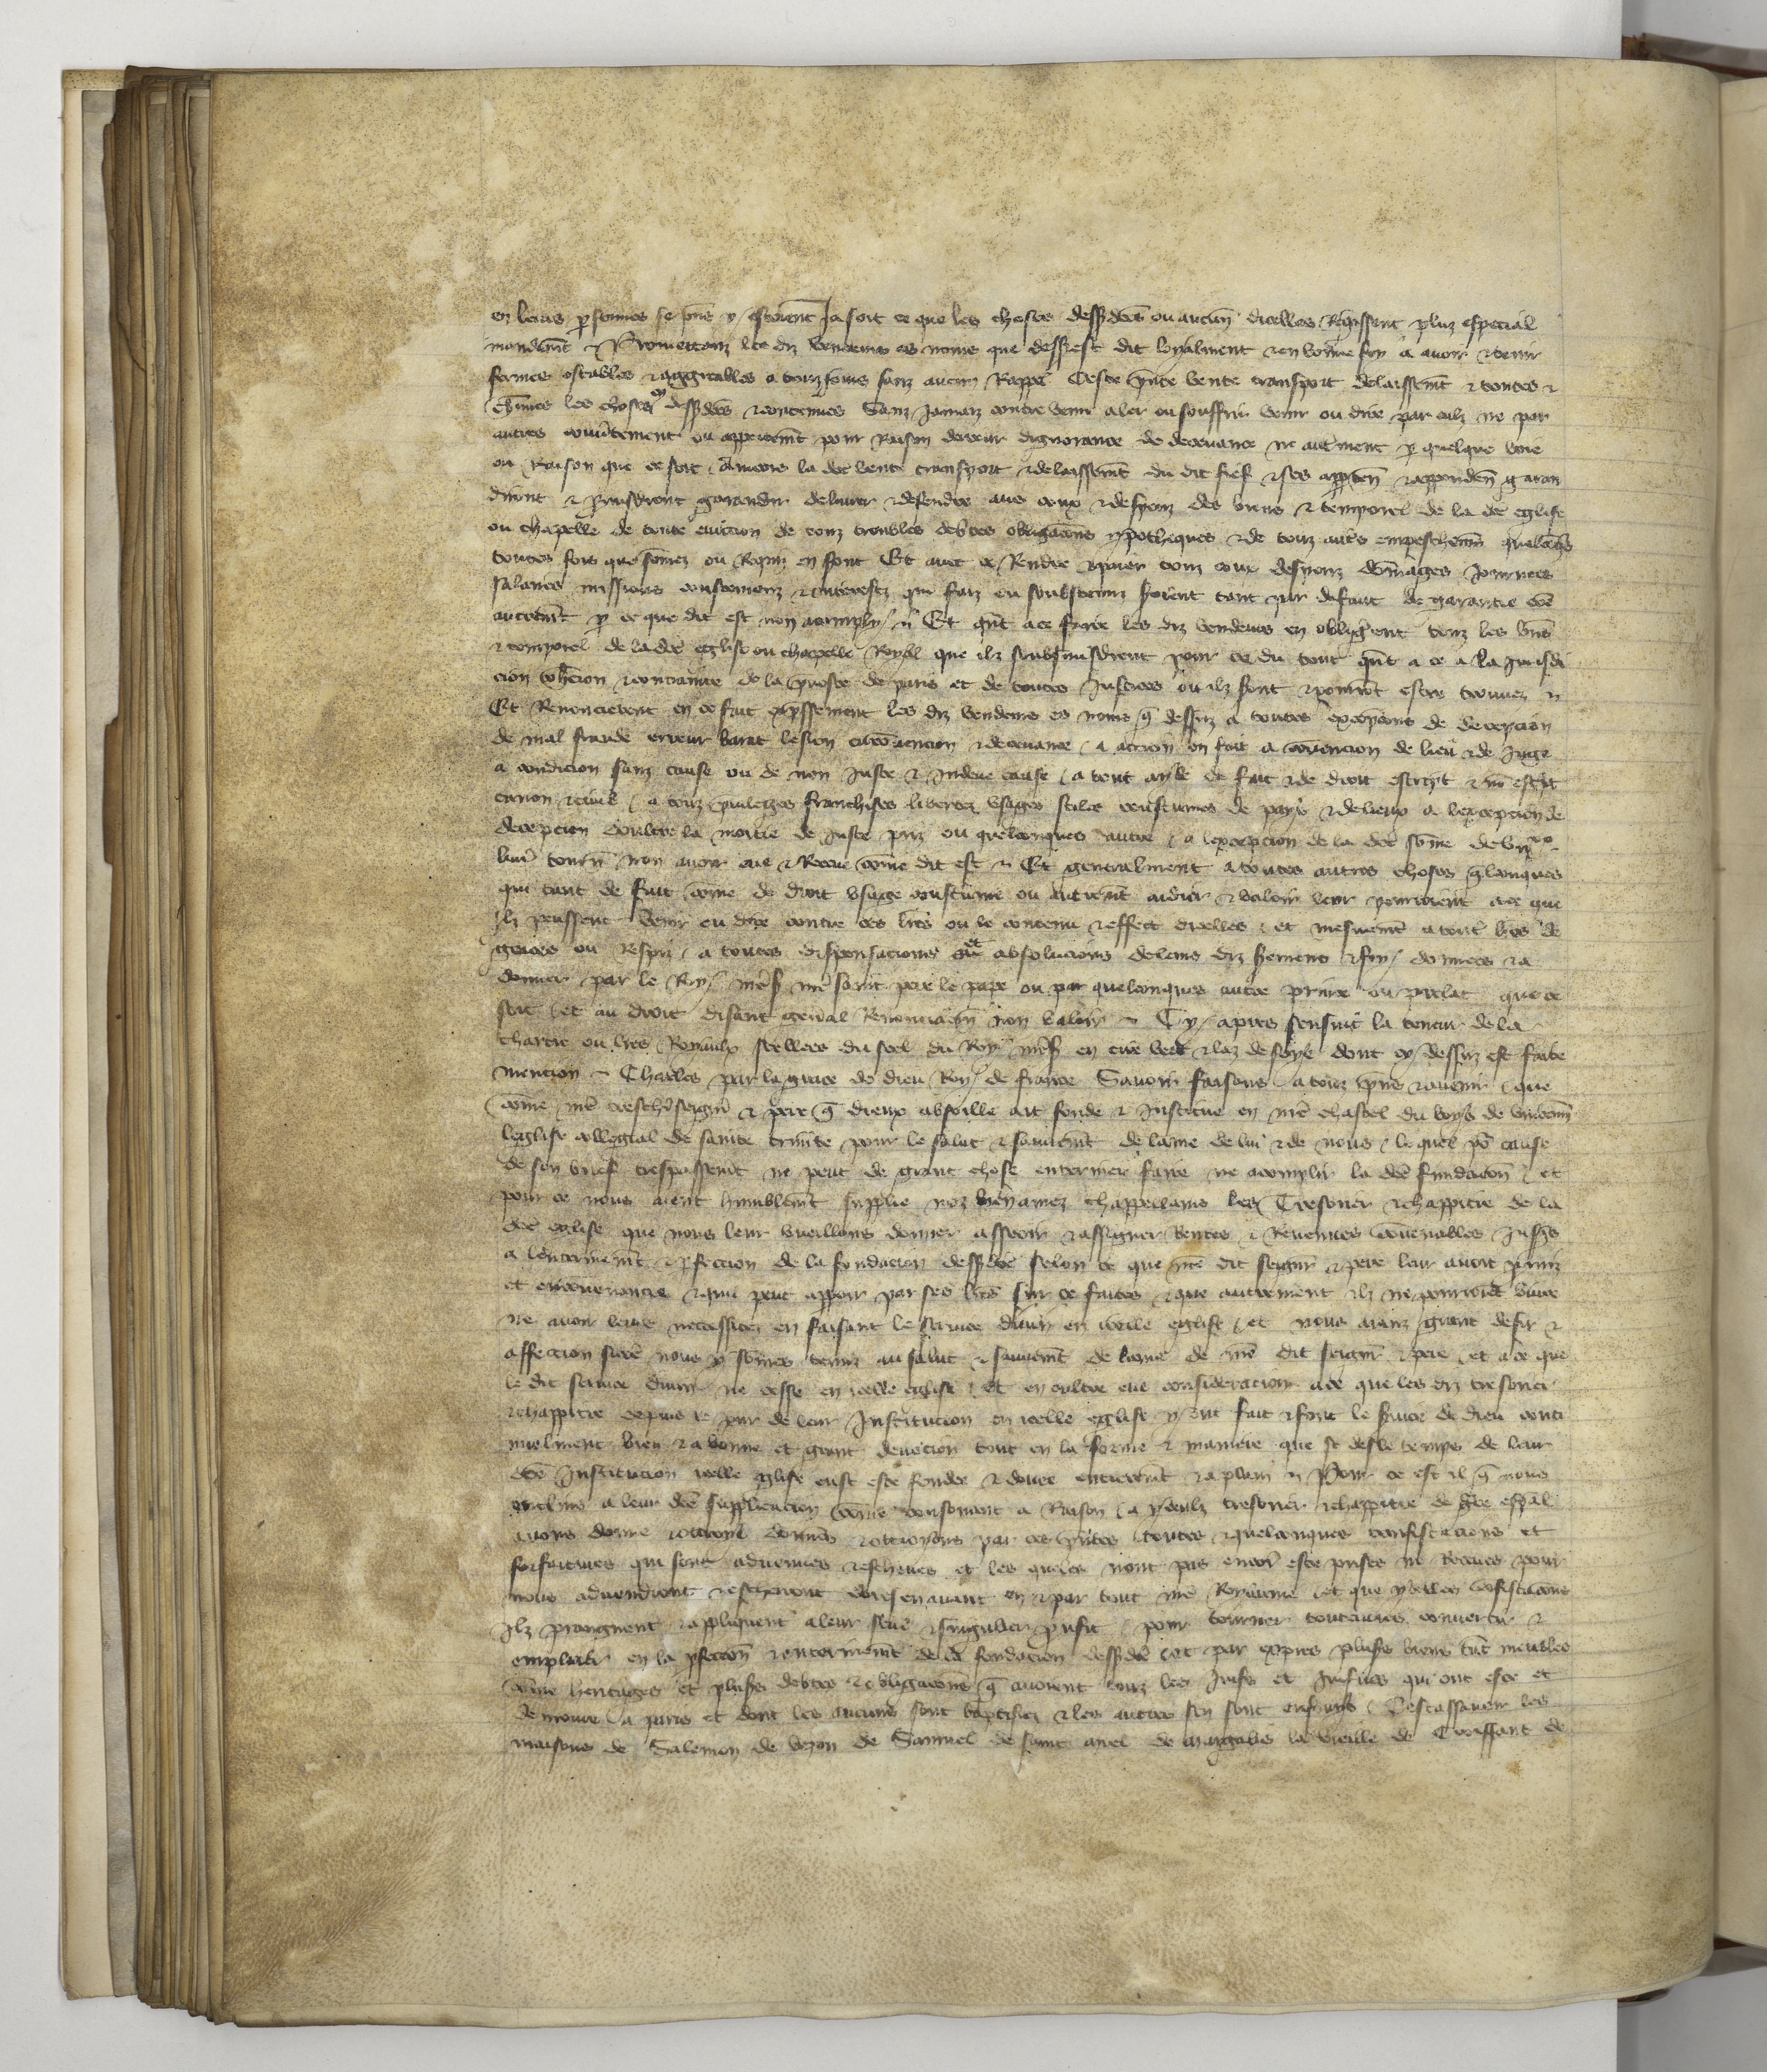 en leurs personnes se presens y estoient Ja soit ce que les choses dessusdictes ou aucunes dicelles Requissent pluz especial
mandement Promettanz les diz vendeurs es noms que dessus est dit loyalment et en bonne foy a avoir et tenir
fermes estables et aggreables a tourjours sanz aucun Rappel Ceste presente vente transport delaissement et toutes et
chascunes les choses cy dessusdictes et contenues Sanz Jamaiz contre venir aler ou souffrir venir ou dire par eulz ne par
autres couvertement ou appertement pour Raison derreur dignorance de decevance ne autrement par quelque voie
ou Raison que ce soit Ancores la dicte vente transport et delaissement du dit fief et ses appartenances et appendences garan
diront et prendront garandir delivrer et defendre aus coux et despenz des biens et temporel de la dicte eglise
ou chapelle de toute eviction de touz troubles debtes obligacions ypotheques et de touz autres empeschemens quelconques
toutes fois que sommez ou Requis en sont Et avec ce Rendre et paier touz coux despenz dommages Journees
salaires missions coustemenz et interestz qui faiz ou soubstenuz seroient tant par defaut de garantie comme
autrement par ce que dit est non acomply Et quant a ce faire les diz vendeurs en obligerent touz les biens
et temporel de la dicte eglise ou chapelle Royal que ilz soubzmisdrent pour ce du tout quant a ce a la Jurisdi
cion cohercion et contrainte de la prevoste de paris et de toutes Justices ou ilz sont et pourront estre trouvez
Et Renoncierent en ce fait expressement les diz vendeurs es noms que dessus a toutes excepcions de decepcion
de mal fraude erreur barat lesion circonvencion et decevance a accion en fait a convencion de lieu et de Juge
a condicion sanz cause ou de non Juste et Indeue cause a tout ayde de fait et de droit escript et non escript
canon et civil a touz privileges franchises libertez usages stiles coustumes de pays et de lieux a lexcepcion de
decepcion doultre la moitie de Juste pris ou quelconques autre a lexcepcion de la dicte somme de
livres tournois non avoir eue et Receue comme dit est Et generalment a toutes autres choses quelconques
qui tant de fait comme de droit usage coustume ou autrement aidier et valoir leur pourroient a ce que
Ilz peussent venir ou dire contre ces lettres ou le contenu et effect dicelles et mesmement a toutes lettres de
graces ou Respiz a toutes dispensacions et absolucions de leurs diz seremens et foy donnees et a
donner par le Roy nostre sire nostre saint pere le pape ou par quelconques autre prince ou prelat que ce
soit et au droit disant general Renonciacion non valoir Cy apres sensuit la teneur de la
chartre ou lettres Royaulx scellees du scel du Roy nostre sire en cire vert et laz de soye dont cy dessuz est faite
mencion Charles par la grace de dieu Roy de france Savoir faisons a touz presens et avenir que
comme nostre treschier seigneur et pere que dieux absoille ait fonde et Institue en nostre chastel du boys de vincennes
leglise collegial de sainte trinite pour le salut et sauvement de lame de lui et de nous lequel pour cause
de son brief trespassement ne peut de grant chose enteriner faire ne acomplir la dicte fundacion et
pour ce nous aient humblement supplie noz bien amez chappellains les Tresorier et chappitre de la
dicte eglise que nous leur vueillons donner asseoir et assigner Rentes et Revenues convenables Jusques
a lenterinement et perfeccion de la fondacion dessusdicte selon ce que nostre dit seigneur et pere leur avoit promis
et encouvenancie et que peut apparoir par ses lettres sur ce faites et que autrement ilz ne pourroient vivre
ne avoir leurs necessitez en faisant le service divin en icelle eglise et nous aianz grant desir et
affeccion sicomme nous y sommes tenuz au salut et sauvement de lame de nostre dit seigneur et pere et a ce que
le dit service divin ne cesse en icelle eglise Et en oultre eue consideracion a ce que les diz tresorier
et chappitre depuis le jour de leur Institucion en icelle eglise y ont fait et font le service de dieu conti
nuelment bien et a bonne et grant devocion tout en la forme et maniere que se des le temps de leur
dicte Institucion icelle eglise eust este fondee et douee entierement et a plain Pour ce est il que nous
enclins a leur dicte supplicacion comme consonant a Raison a yceulz tresorier et chappitre de grace especial
avons donne et ottroye donnons et ottroyons par ces presentes toutes et quelconques confiscacions et
forfaitures qui sont advenues et escheues et les queles nont pas encor este prises ne Receues pour
nous advendront et escherront doresenavant en et par tout nostre Royaume et que ycelles confiscacions
Ilz praingnent et appliquent a leur seul et singulier proufit pour tourner toutevoies convertir et
emploier en la perfeccion et enterinement de la fondacion dessusdicte et par expres plusieurs biens tant meubles
comme heritages et plusieurs debtes et obligacions que avoient touz les Juifs et Juifves qui ont este et
demoure a paris et dont les aucuns sont baptisiez et les autres sen sont enfuyz Cestassavoir les
maisons de Salemon de vezou de Samuel de saint mel de Margalis la vieille de Croissant de